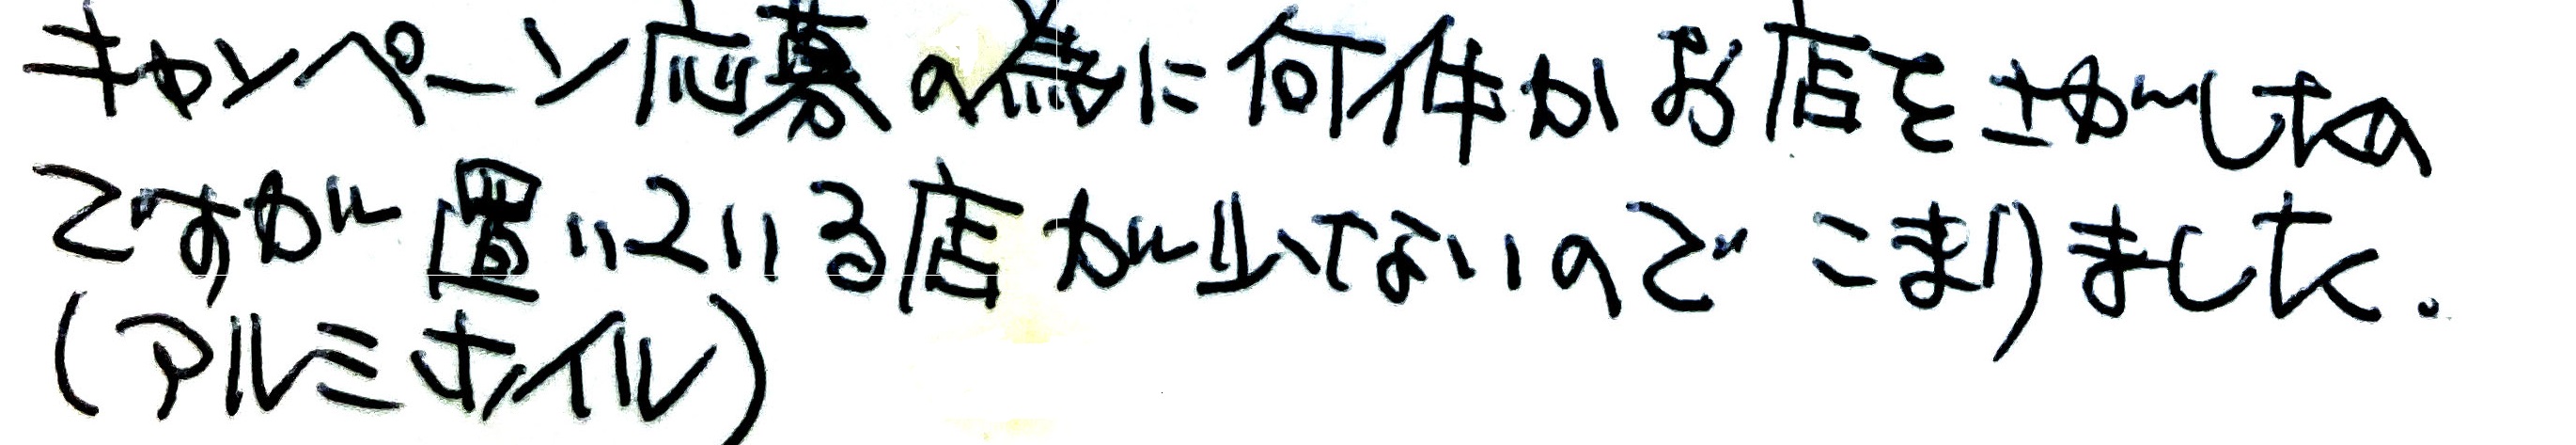 キャンペーン応募の為に何件かお店をさがしたの
ですが置いている店が少ないのでこまりました。
(アルミホイル)